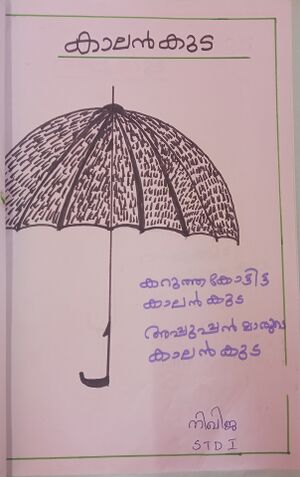 കാലൻകുട
കറുത്തകോട്ടിട്ട
കാലൻ കുട
അപ്പൂപ്പൻ മാരുടെ
കാലൻ കുട
നിഖിജ
STD I